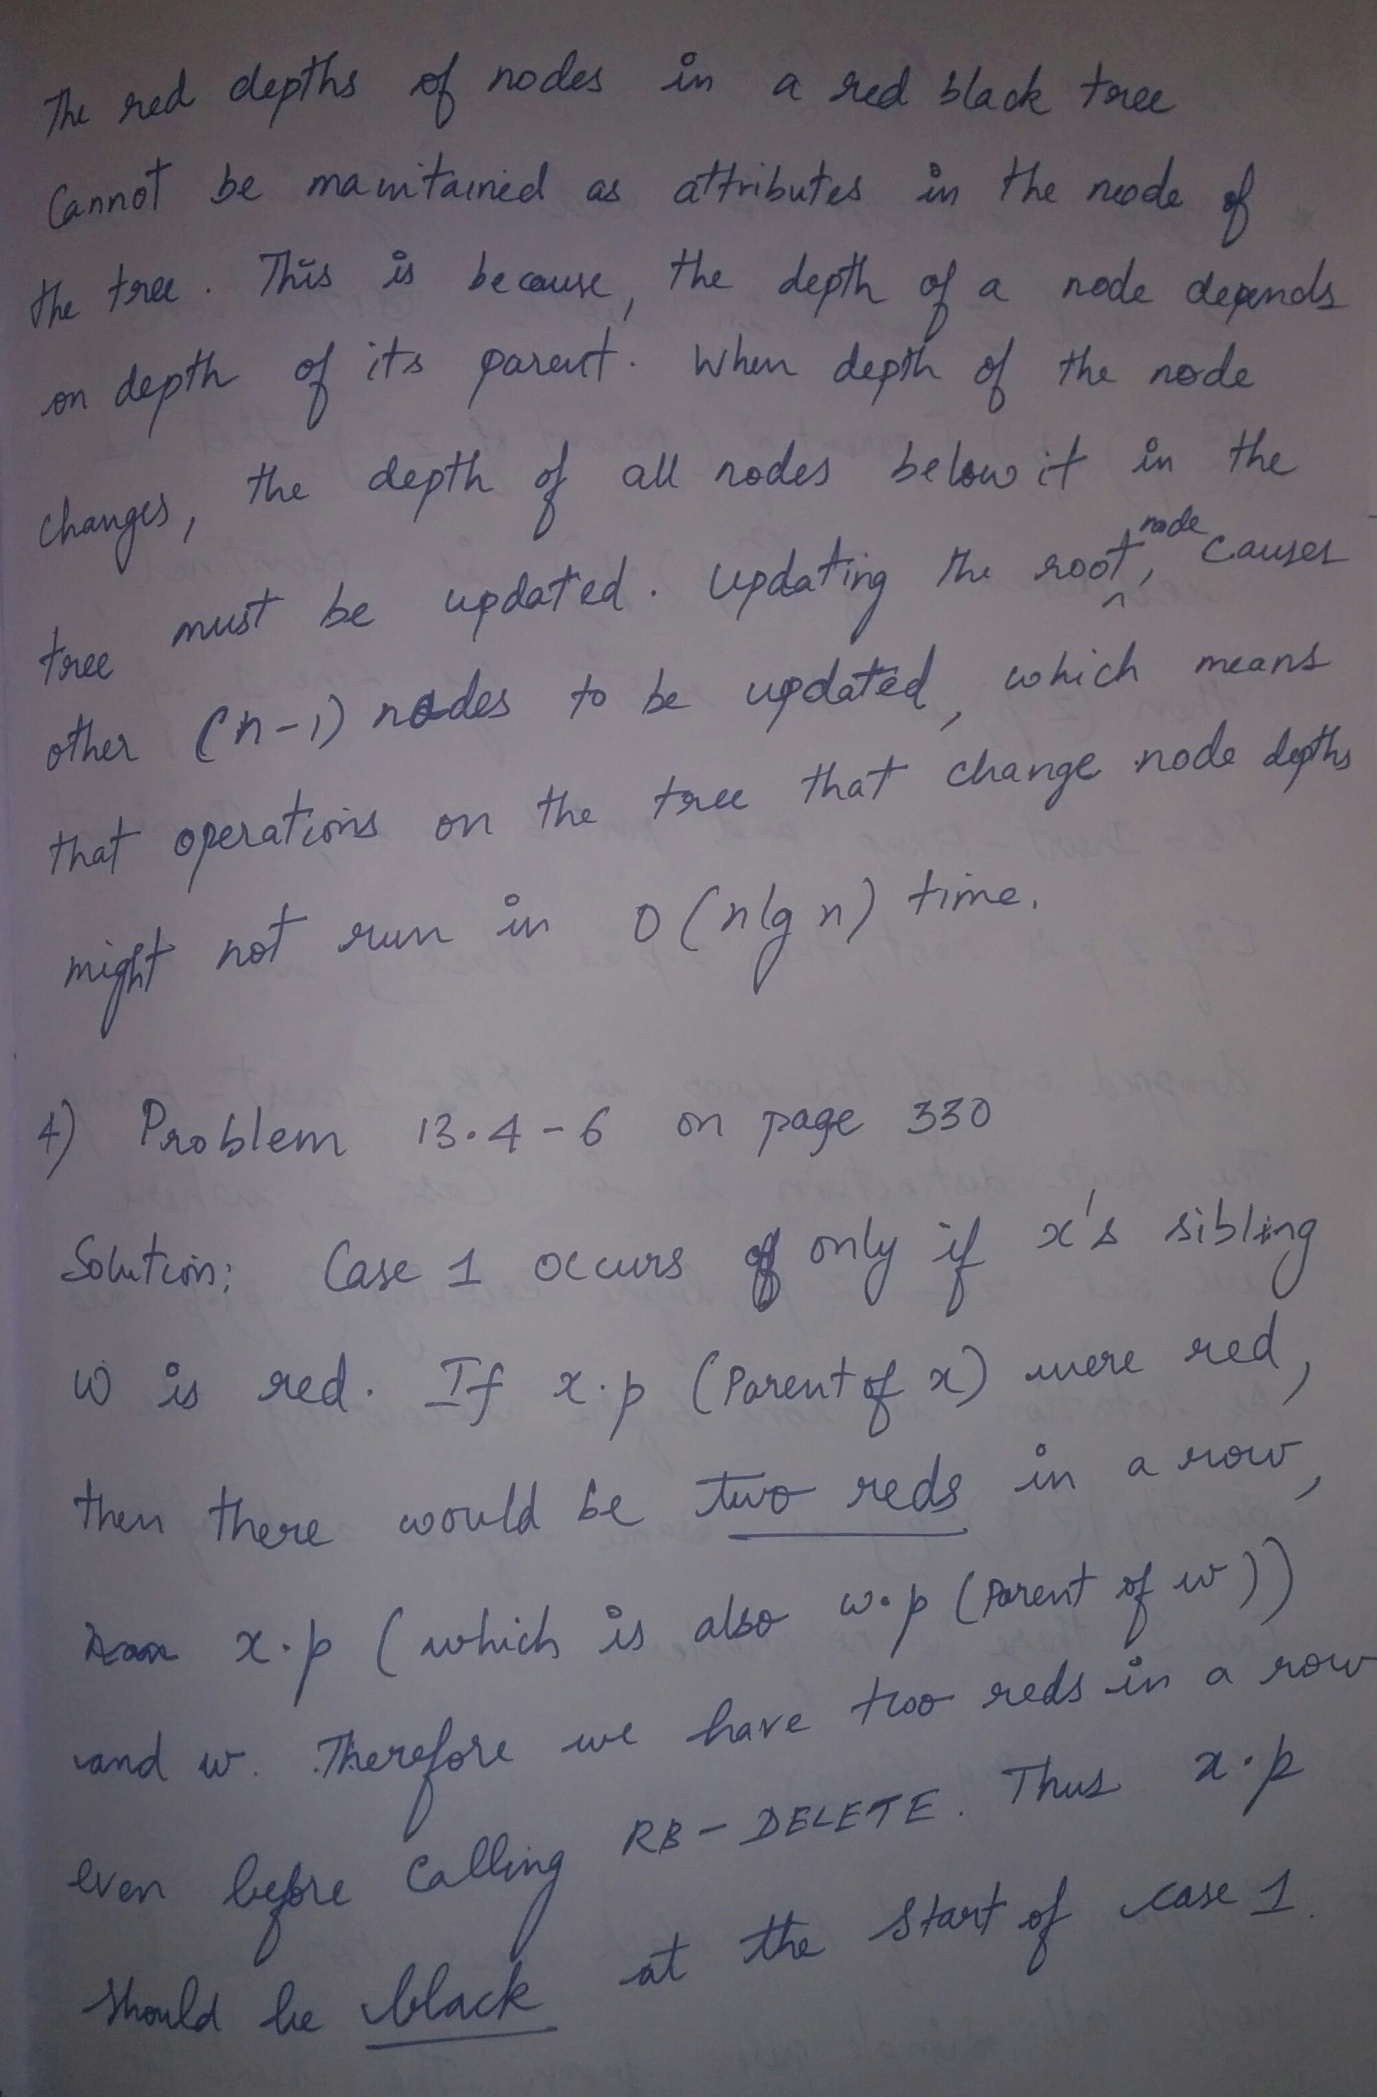 The red depths of nodes in a red black tree
Cannot be maintained as attributes in the node of
the tree. This is because, the depth of a node depends
on depth of its parent. When depth of the node
changes, the depth of all nodes below it in the
tree must be updated. Updating the root node, causes
other (n-1) nodes to be updated, which means
that operations on the tree that change node depths
might not run in O(nlg n) time.
4) Problem 13.4-6 on page 330
Solution: Case 1 occurs only if x's sibling
w is red. If x.p (Parent of x) were red,
then there would be two reds in a row,
x.p (which is also w.p (Parent of w))
and w. Therefore we have two reds in a row
even before calling RB-DELETE. Thus x.p
should be black at the start of case 1.